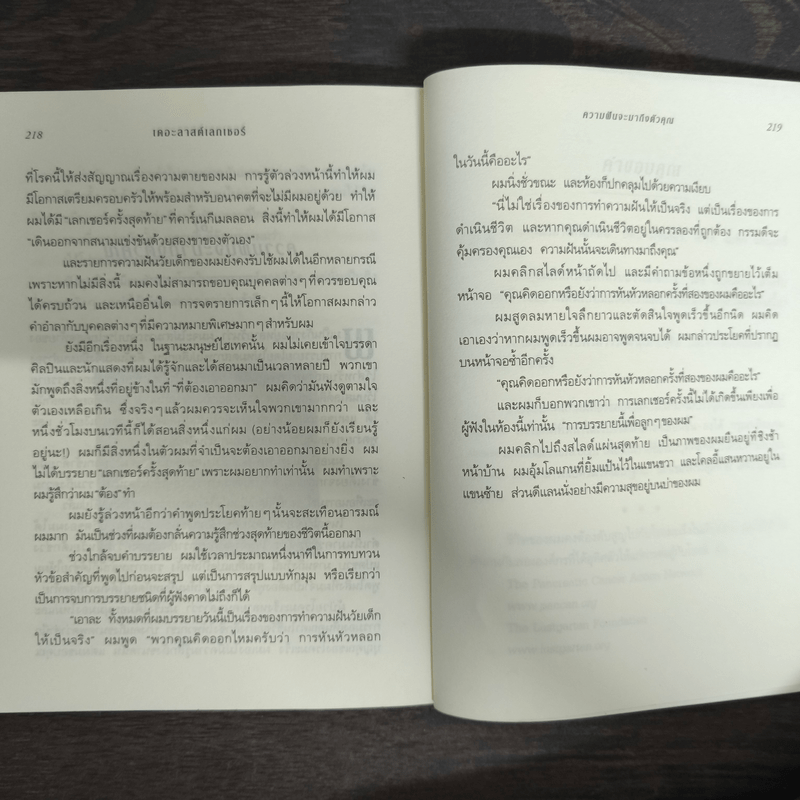 218 เดอะลาสต์เลกเชอร์
ที่โรคนี้ให้ส่งสัญญาณเรื่องความตายของผม การรู้ตัวล่วงหน้านี้ทำให้ผม
มีโอกาสเตรียมครอบครัวให้พร้อมสำหรับอนาคตที่จะไม่มีผมอยู่ด้วย ทำให้
ผมได้มี “เลกเชอร์ครั้งสุดท้าย” ที่คาร์เนกีเมลลอน สิ่งนี้ทำให้ผมได้มีโอกาส
“เดินออกจากสนามแข่งขันด้วยสองขาของตัวเอง”
และรายการความฝันวัยเด็กของผมยังคงรับใช้ผมได้ในอีกหลายกรณี
เพราะหากไม่มีสิ่งนี้ ผมคงไม่สามารถขอบคุณบุคคลต่างๆ ที่ควรขอบคุณ
ได้ครบถ้วน และเหนืออื่นใด การจดรายการเล็กๆ นี้ให้โอกาสผมกล่าว
คำอำลากับบุคคลต่างๆ ที่มีความหมายพิเศษมากๆ สำหรับผม
ยังมีอีกเรื่องหนึ่ง ในฐานะมนุษย์ไฮเทคนั้น ผมไม่เคยเข้าใจบรรดา
ศิลปินและนักแสดงที่ผมได้รู้จักและได้สอนมาเป็นเวลาหลายปี พวกเขา
มักพูดถึงสิ่งหนึ่งที่อยู่ข้างในที่ “ที่ต้องเอาออกมา” ผมคิดว่ามันฟังดูตามใจ
ตัวเองเหลือเกิน ซึ่งจริงๆ แล้วผมควรจะเห็นใจพวกเขามากกว่า และ
หนึ่งชั่วโมงบนเวทีนี้ก็ได้สอนสิ่งหนึ่งแก่ผม (อย่างน้อยผมก็ยังเรียนรู้
อยู่นะ!) ผมก็มีสิ่งหนึ่งในตัวผมที่จำเป็นจะต้องเอาออกมาอย่างยิ่ง ผม
ไม่ได้บรรยาย “เลกเชอร์ครั้งสุดท้าย” เพราะผมอยากทำเท่านั้น ผมทำเพราะ
ผมรู้สึกว่าผม “ต้อง” ทำ
ผมยังรู้ล่วงหน้าอีกว่าคำพูดประโยคท้ายๆ นั้นจะสะเทือนอารมณ์
ผมมาก มันเป็นช่วงที่ผมต้องกลั่นความรู้สึกช่วงสุดท้ายของชีวิตนี้ออกมา
ช่วงใกล้จบคำบรรยาย ผมใช้เวลาประมาณหนึ่งนาทีในการทบทวน
หัวข้อสำคัญที่พูดไปก่อนจะสรุป แต่เป็นการสรุปแบบหักมุม หรือเรียกว่า
เป็นการจบการบรรยายชนิดที่ผู้ฟังคาดไม่ถึงก็ได้
“เอาละ ทั้งหมดที่ผมบรรยายวันนี้เป็นเรื่องของการทำความฝันวัยเด็ก
ให้เป็นจริง” ผมพูด “พวกคุณคิดออกไหมครับว่า การหันหัวหลอก
ความฝันจะมาถึงตัวคุณ 219
ในวันนี้คืออะไร”
ผมนิ่งชั่วขณะ และห้องก็ปกคลุมไปด้วยความเงียบ
“นี่ไม่ใช่เรื่องของการทำความฝันให้เป็นจริง แต่เป็นเรื่องของการ
ดำเนินชีวิต และหากคุณดำเนินชีวิตอยู่ในครรลองที่ถูกต้อง กรรมดีจะ
คุ้มครองคุณเอง ความฝันนั้นจะเดินทางมาถึงคุณ”
ผมคลิกสไลด์หน้าถัดไป และมีคำถามข้อหนึ่งถูกขยายไว้เต็ม
หน้าจอ “คุณคิดออกหรือยังว่าการหันหัวหลอกครั้งที่สองของผมคืออะไร”
ผมสูดลมหายใจลึกยาวและตัดสินใจพูดเร็วขึ้นอีกนิด ผมคิด
เอาเองว่าหากผมพูดเร็วขึ้นผมอาจพูดจนจบได้ ผมกล่าวประโยคที่ปรากฏ
บนหน้าจอซ้ำอีกครั้ง
“คุณคิดออกหรือยังว่าการหันหัวหลอกครั้งที่สองของผมคืออะไร”
และผมก็บอกพวกเขาว่า การเลกเชอร์ครั้งนี้ไม่ได้เกิดขึ้นเพียงเพื่อ
ผู้ฟังในห้องนี้เท่านั้น “การบรรยายนี้เพื่อลูกๆ ของผม”
ผมคลิกไปถึงสไลด์แผ่นสุดท้าย เป็นภาพของผมยืนอยู่ที่ชิงช้า
หน้าบ้าน ผมอุ้มโลแกนที่ยิ้มแป้นไว้ในแขนขวา และโคลอี้แสนหวานอยู่ใน
แขนซ้าย ส่วนดีแลนนั่งอย่างมีความสุขอยู่บนบ่าของผม